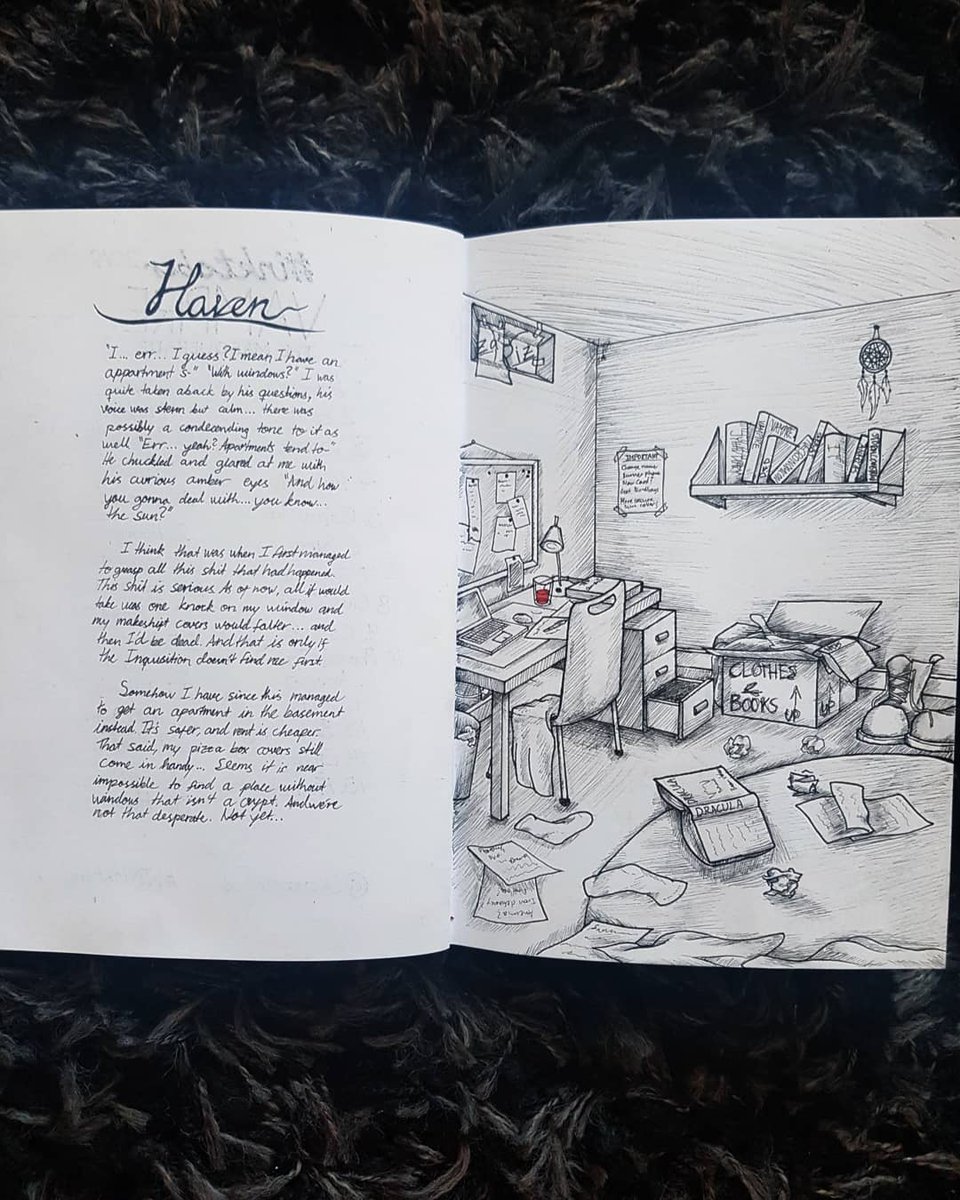 Haven
"I... err... I guess? I mean I have an
appartment s-" "With windows?" I was
quite taken aback by his questions, his
voice was stern but calm... there was
possibly a condecending tone to it as
well "Err... yeah? Apartments tend to-"
He chuckled and glared at me with
his curious amber eyes "And how
you gonna deal with... you know...
the sun?"
I think that was when I first managed
to grasp all this shit that had happened.
This shit is serious. As of now, all it would
take was one knock on my window and
my makeshift covers would falter... and
then I'd be dead. And that is only if
the Inquisition doesn't find me first.
Somehow I have since this managed
to get an apartment in the basement
instead. It's safer, and rent is cheaper.
That said, my pizza box covers still
come in handy... Seems it is near
impossible to find a place without
windows that isn't a crypt. And we're
not that desperate. Not yet...
IMPORTANT
Change name
Burner phone
New Card?
More secure
CLOTHES
&
BOOKS
UP
UP
DRACULA